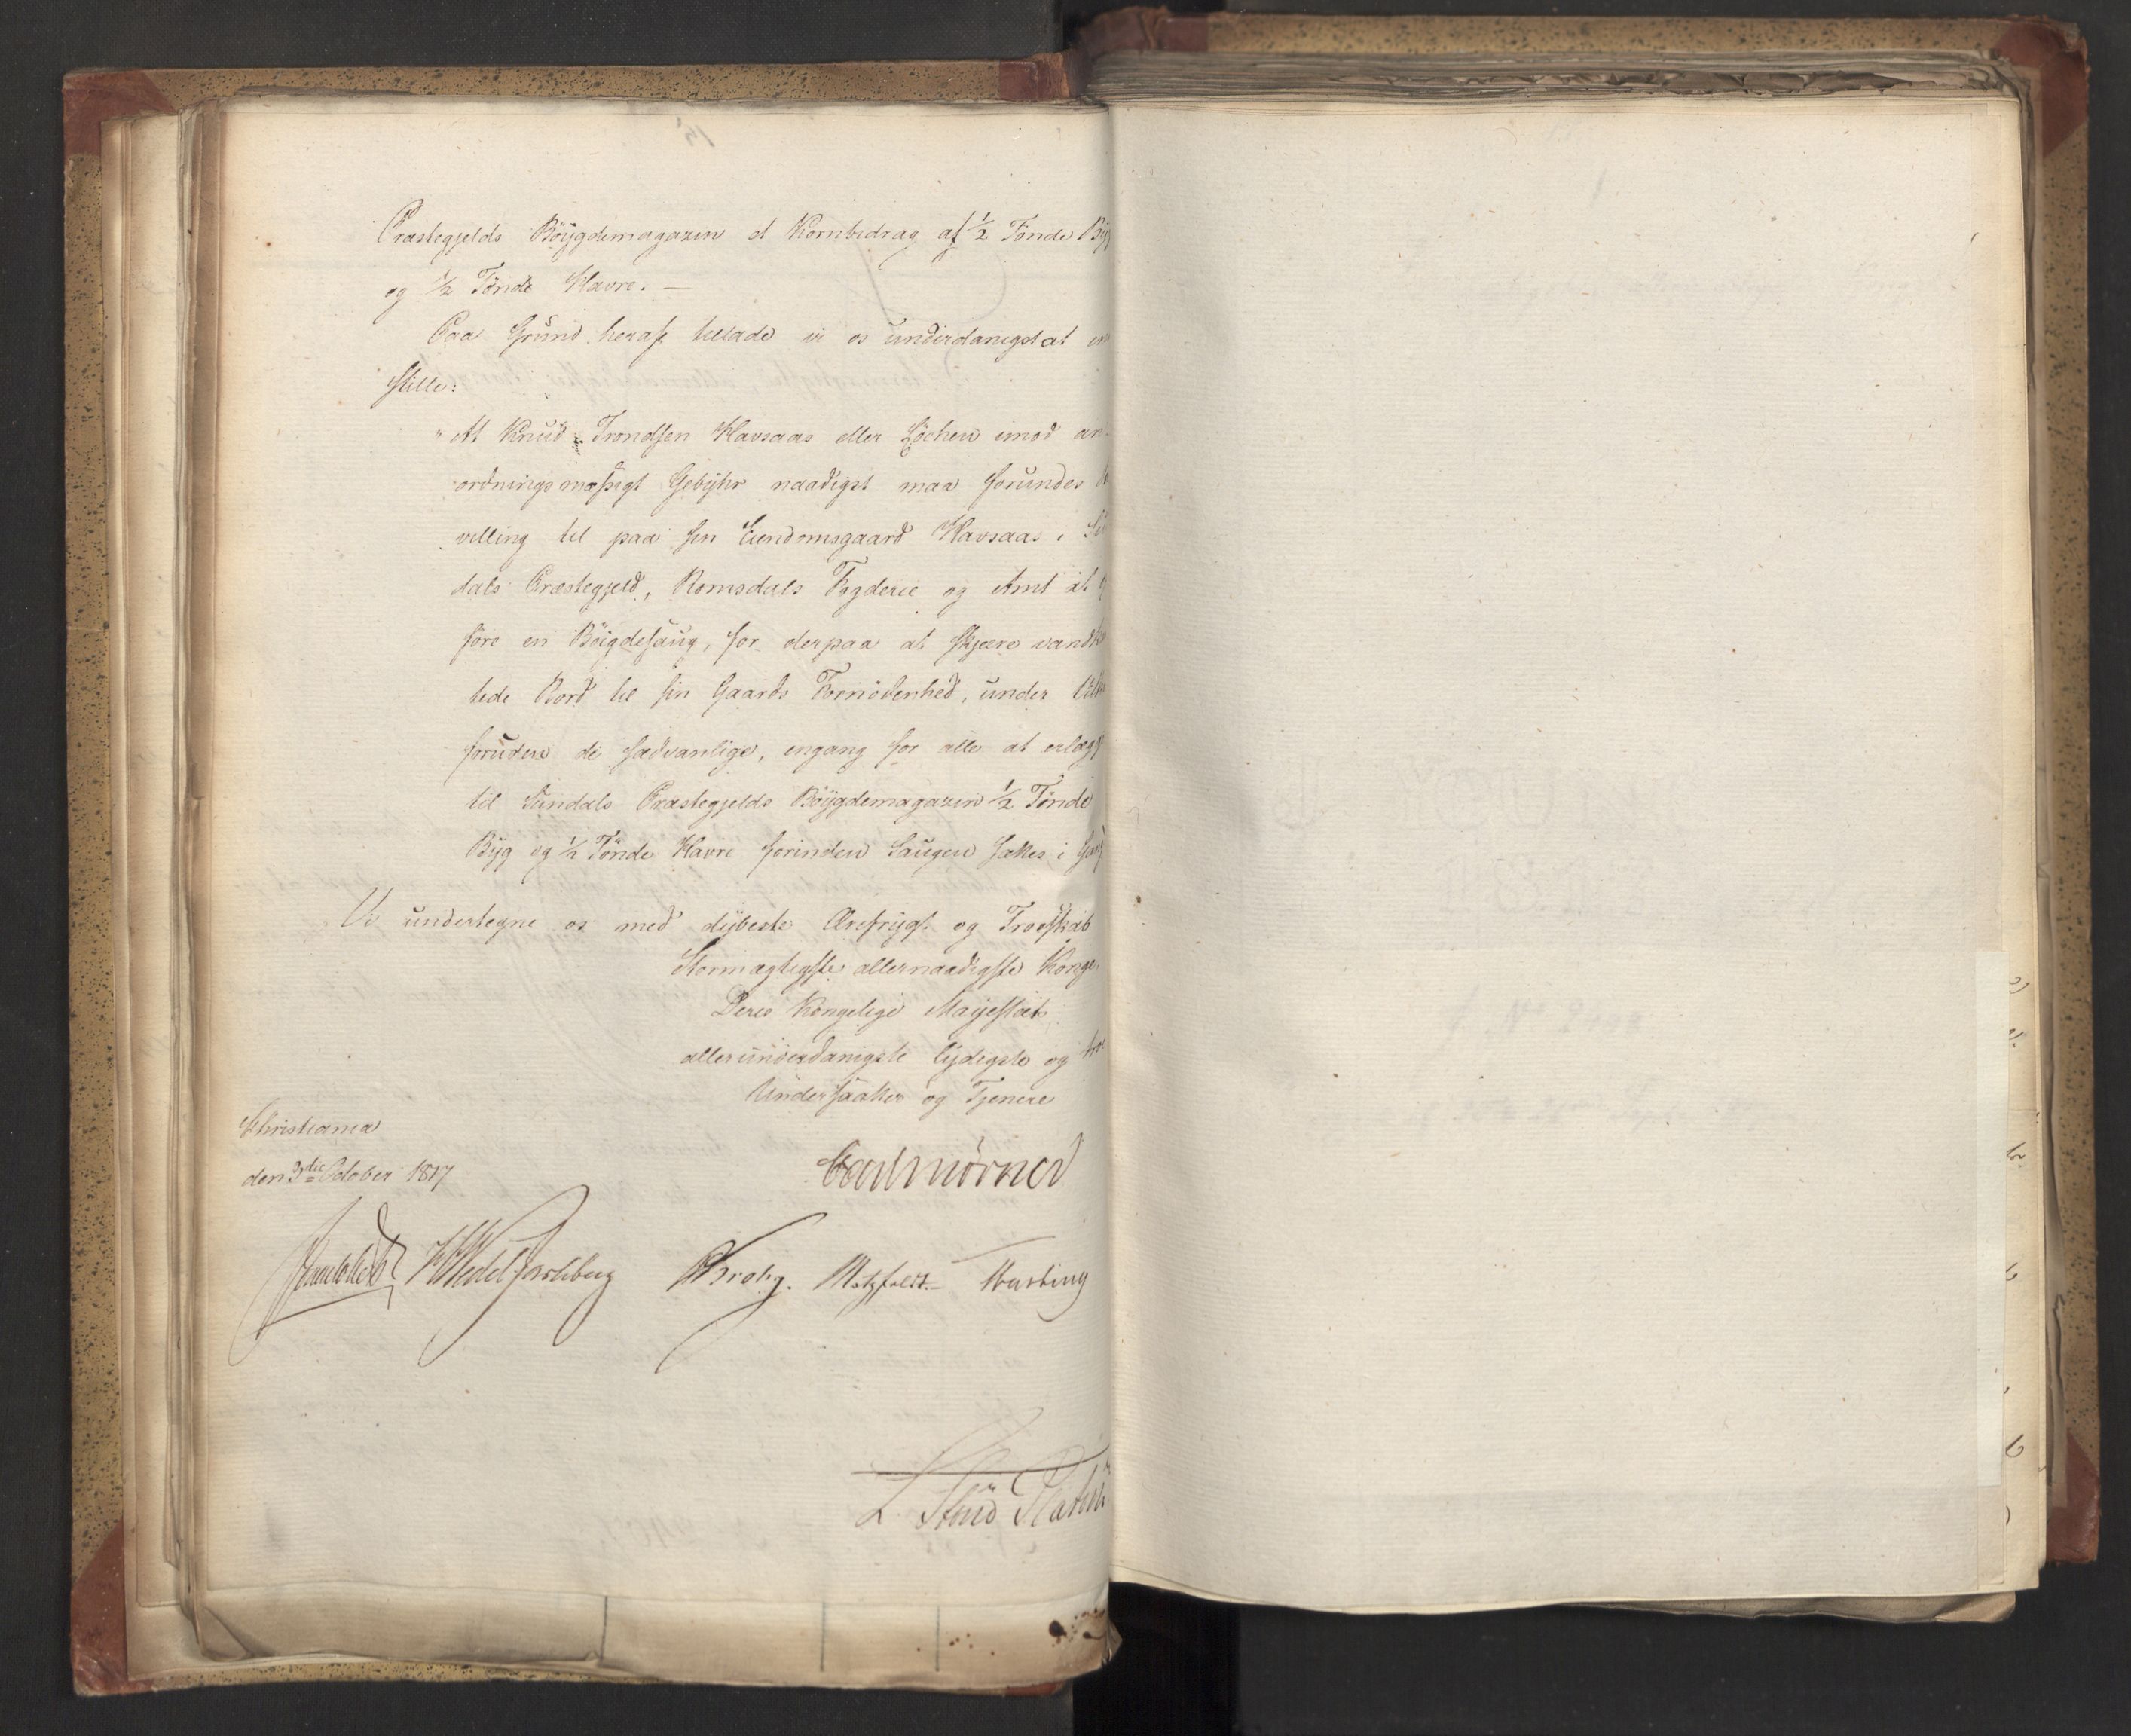 Præstegjelds Böygdemagazin et Kornbidrag af 1/2 Tönde Byg
og 1/2 Tönde Havre. —
Paa Grund heraf tillade vi os underdanigst at
stille:
"At Knud Trondsen Havsaas eller Löchen imod an-
ordningsmæssigt Gebyhr naadigst maa forundes
villing til paa sin Eiendomsgaard Havsaas i
dals Præstegjeld, Romsdals Fogderie og Amt at
före en Böigdesaug, for derpaa at skjære
tede Bord til sin Gaards Fornödenhed, under
foruden de sædvanlige, engang for alle at erlægge
til Sundals Præstegjelds Böygdemagazin 1/2 Tönde
Byg og 1/2 Tönde Havre forinden Saugen sættes i Gang
Vi undertegne os med dybeste Ærefrygt og Troeskab
Stormægtigste allernaadigste Konge
Deres Kongelige Majestæt
allerunderdanigste lydigste og troe
Undersaatter og Tjenere
Christiania
den 3die October 1817
Carl Mörner
HWedel Jarlsberg Krohg. Motzfeldt.